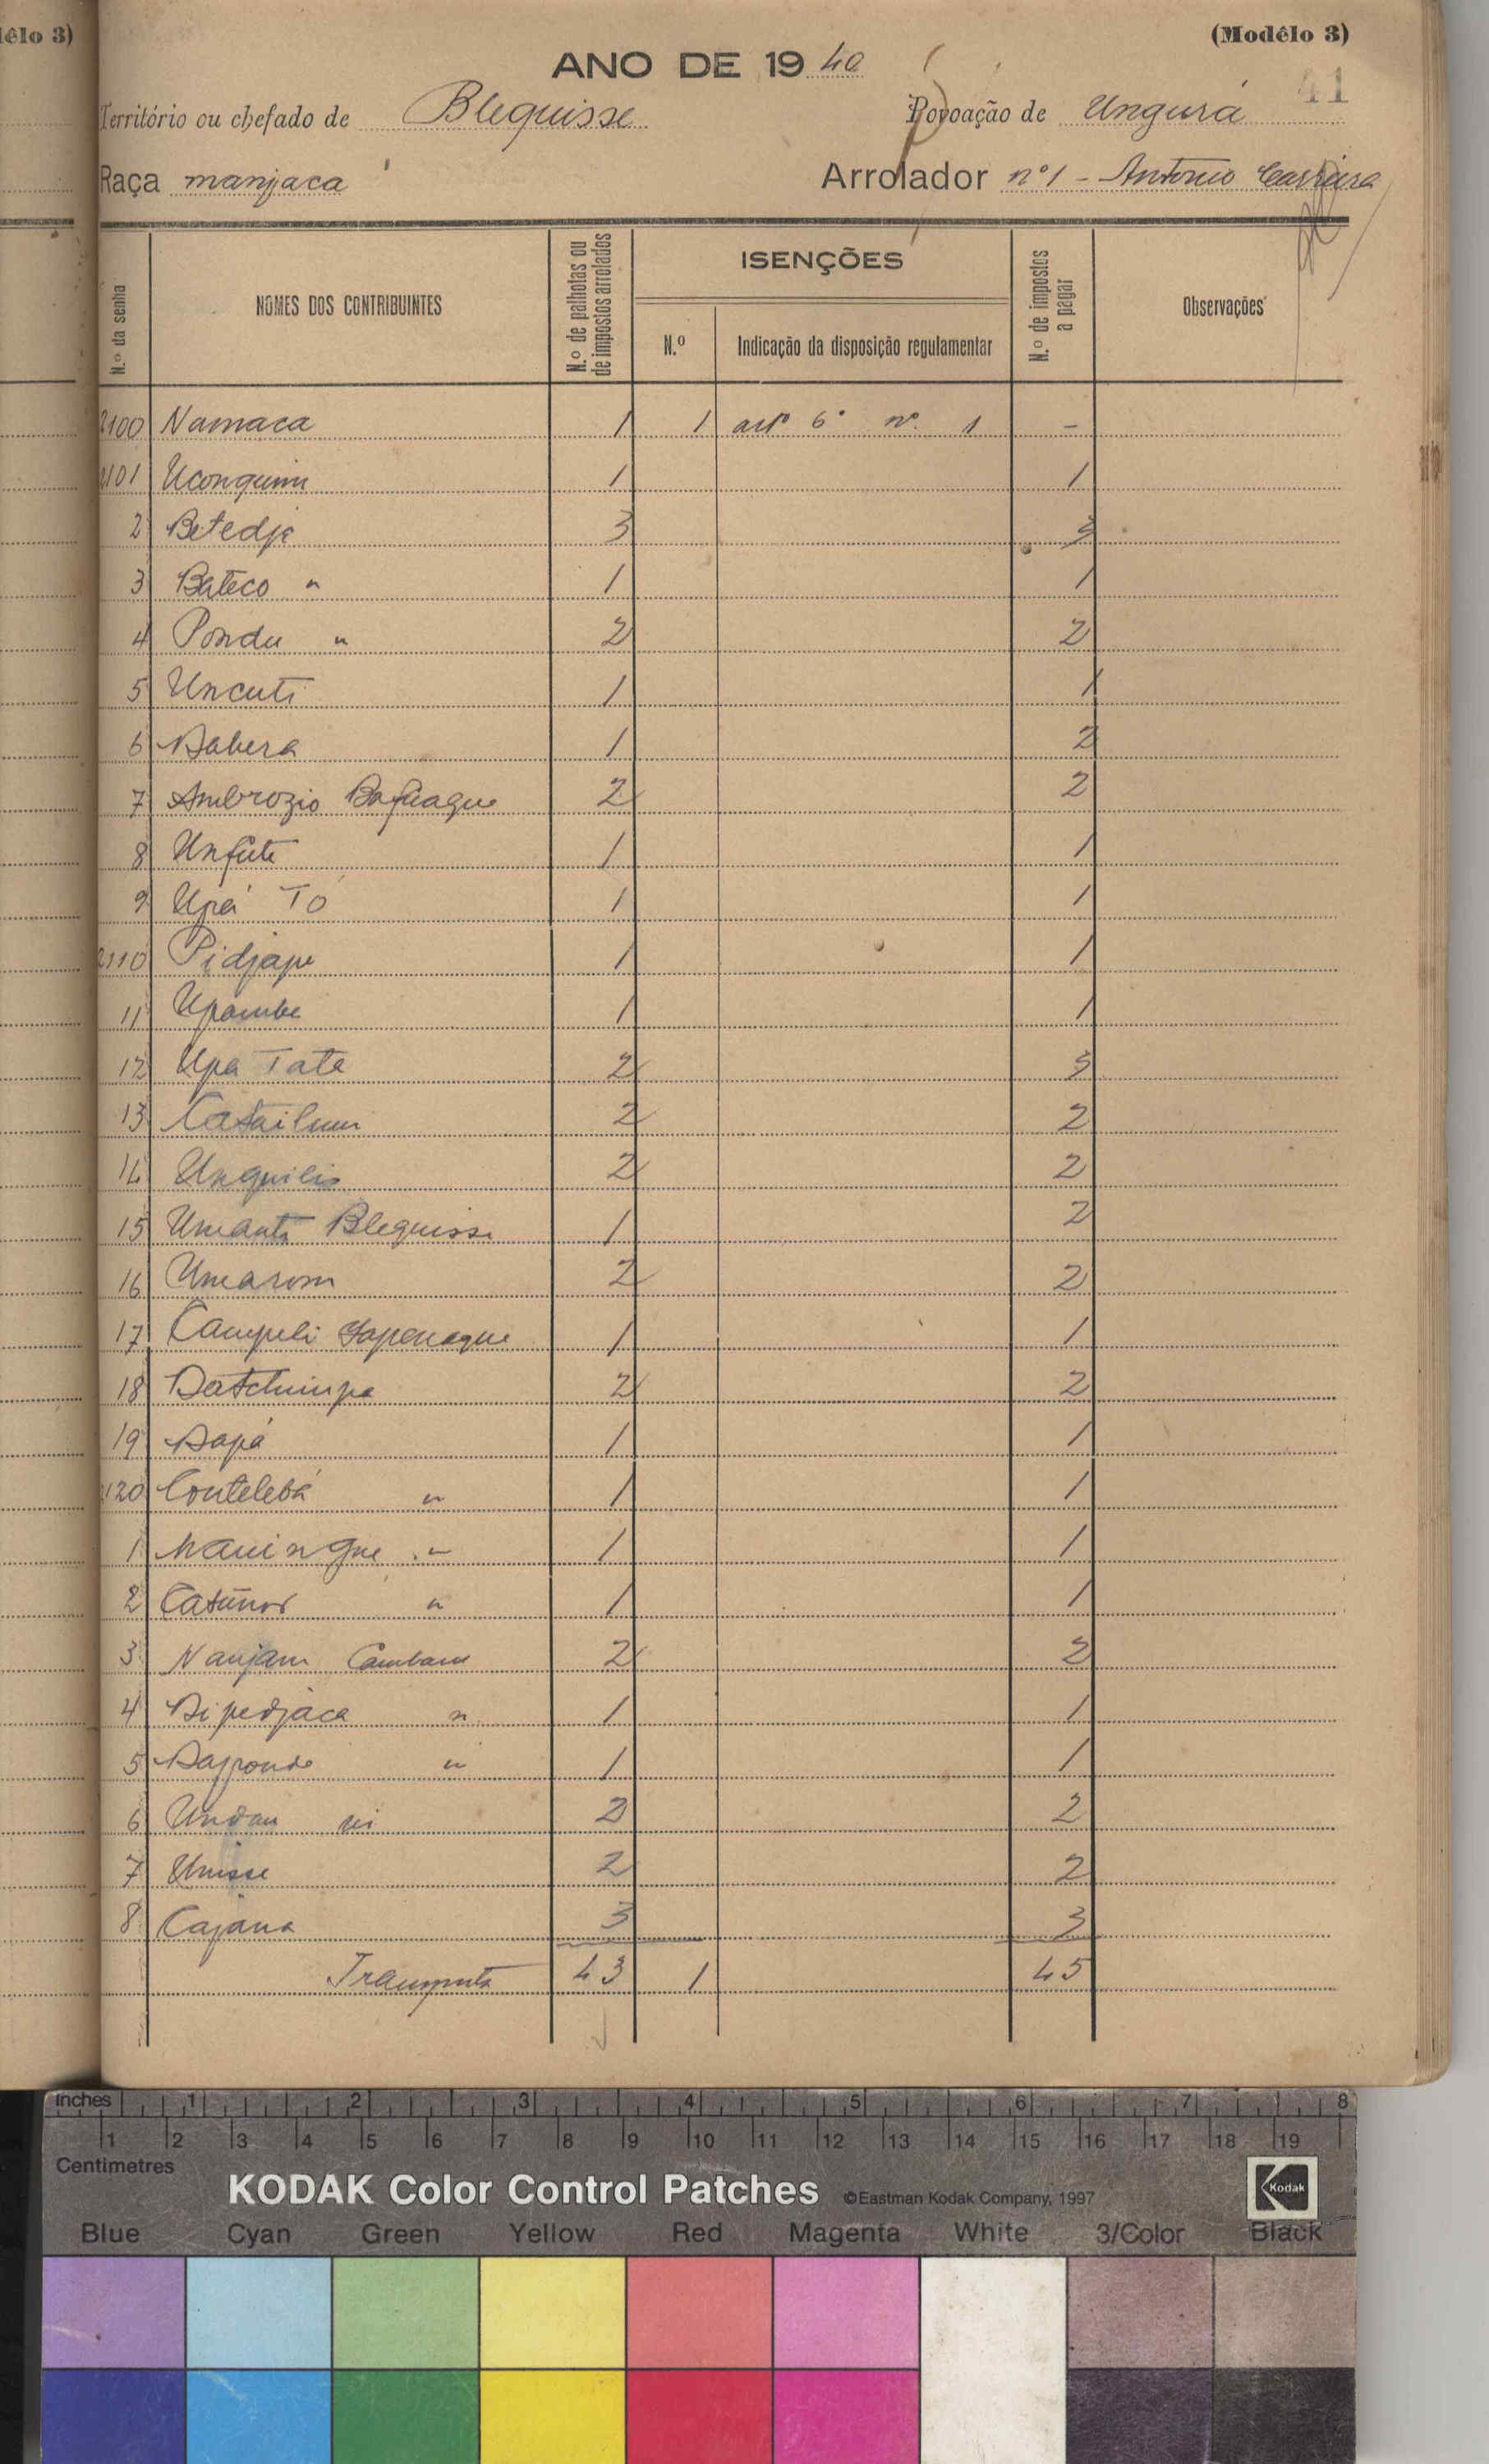 êlo 3)
(Modêlo 3)
41
ANO DE 1940
Território ou chefado de Bleguisse Povoação de Ungurá
Raça manjaca Arrolador nº 1 - António Carreira
N.º da senha
NOMES DOS CONTRIBUINTES
N.º de palhotas ou de impostos arrolados
ISENÇÕES
N.º
Indicação da disposição regulamentar
N.º de impostos a pagar
Observações
2100 Namaca 1 1 artº 6º nº 1 -
2101 Uconquim 1 1
2 Betedja 3 3
3 Bateco " 1 1
4 Pondu " 2 2
5 Uncuti 1 1
6 Dabera 1 2
7 Ambrozio Bafuaque 2 2
8 Unfute 1 1
9 Upá Tó 1 1
2110 Pidjape 1 1
11 Upambe 1 1
12 Upa Tata 2 3
13 Catailum 2 2
14 Unquilis 2 2
15 Umanta Bleguisse 1 2
16 Umarom 2 2
17 Campeli Yapenaque 1 1
18 Datchimpa 2 2
19 Dapá 1 1
2120 Contelebá " 1 1
1 Maningue " 1 1
2 " 1 1
3 Nanjam Cambam 2 2
4 Dipedjaca " 1 1
5 " 1 1
6 Undau 2 2
7 Unisse 2 2
8 Cajana 3 3
43 1 45
inches 1 2 3 4 5 6 7 8
1 2 3 4 5 6 7 8 9 10 11 12 13 14 15 16 17 18 19
Centimetres
KODAK Color Control Patches ©Eastman Kodak Company, 1997 Kodak
Blue Cyan Green Yellow Red Magenta White 3/Color Black